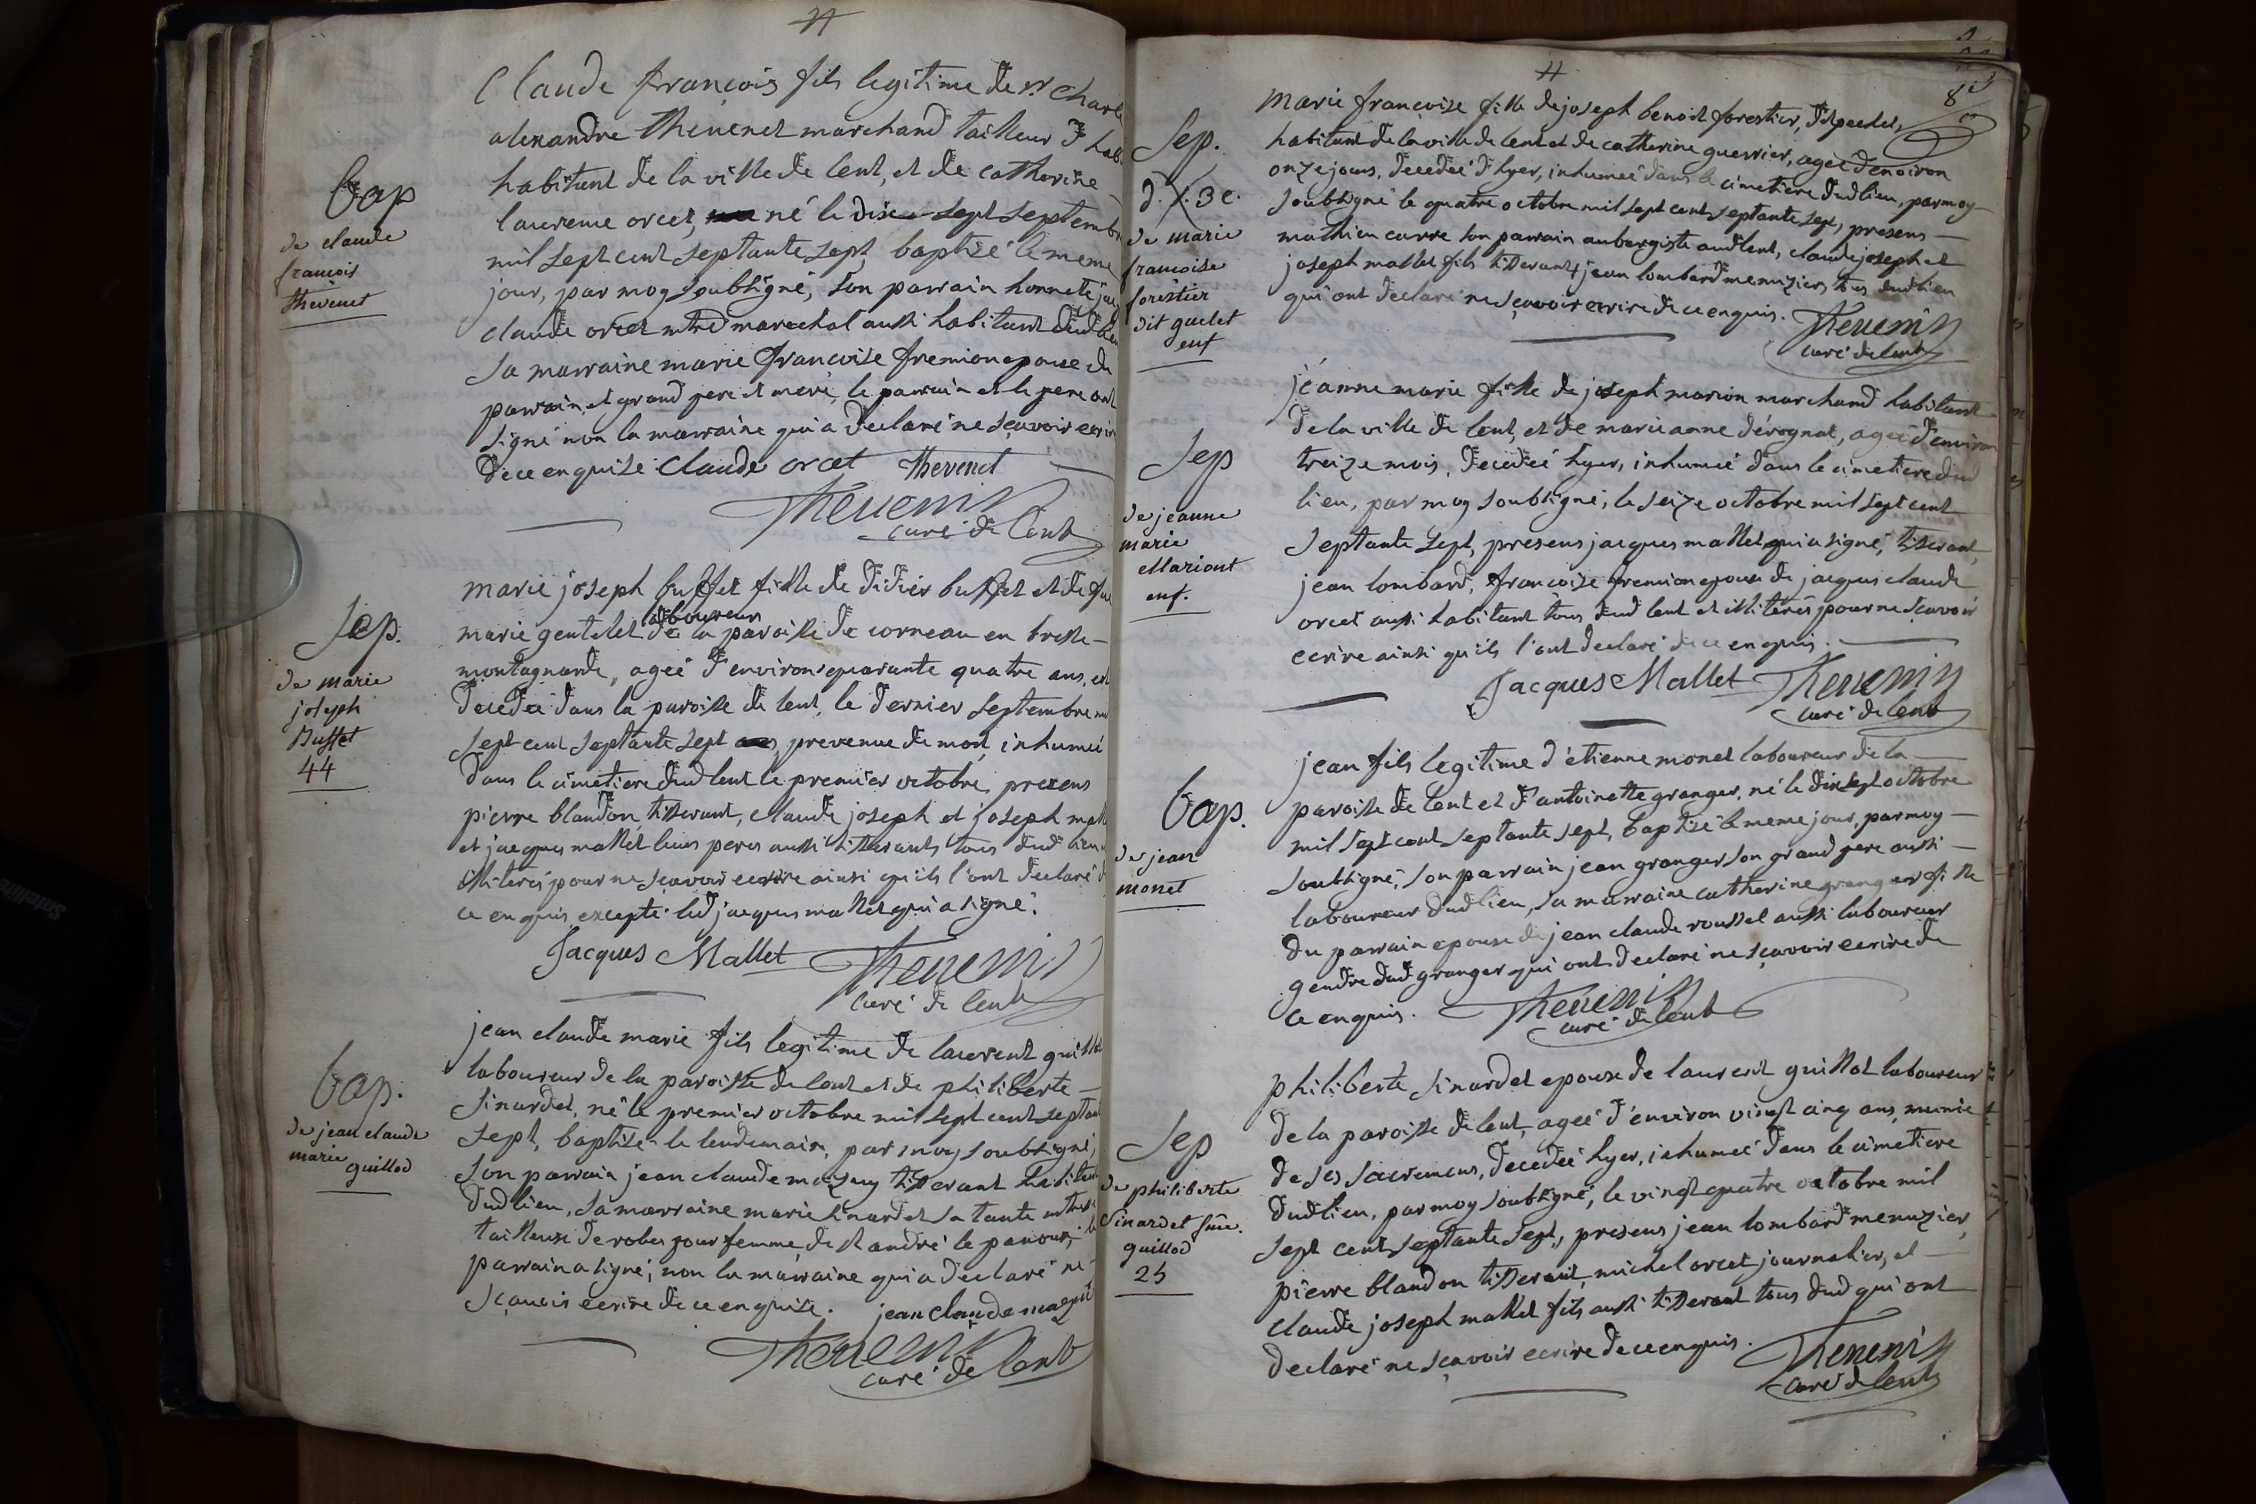 Bap
de claude
francois
thevenet
Claude françois fils legitime de sr charle
alexandre thevenet marchand tailleur
habitant de la ville de lent, et de catherine
laurence orcet, né le dix sept septembre
mil sept cent septante sept, baptisé le meme
jour, par moy soubsigné, son parrain honnete
claude orcet mtre marechal aussi habitant dud lieu
sa marraine marie françoise fremion epouse du
parrain, et grand pere et mere, le parrain et le pere ont
signé non la marraine qui a declaré ne sçavoir ecrire
de ce enquise. claude orcet thevenet
Thevenin
curé de lent
Sep.
de marie
joseph
Buffet
44
marie joseph buffet fille de didier buffet et de
laboureur
marie gentelet de la paroisse de corneau en bresse
montagnarde, ageé d'environ quarante quatre ans, est
decedeé dans la paroisse de lent, le dernier septembre
sept cent septante sept, prevenue de mort, inhumeé
dans le cimetiere dud lent le premier octobre, presens
pierre blandon tisserant, claude joseph et joseph
et jacques mallet leurs peres aussi tisserants tous dud lieu
illiterés pour ne scavoir ecrire ainsi qu'ils l'ont declaré
ce enquis, excepté led jacques mallet qui a signé.
Jacques Mallet Thevenin
curé de lent
bap.
de jean claude
marie guillod
jean claude marie fils legitime de laurent
laboureur de la paroisse de lent et de philiberte
sinardet, né le premier octobre mil sept cent septante
sept, baptisé le lendemain, par moy soubsigné,
son parrain jean claude tisserant habitant
dud lieu, sa marraine marie sinardet sa tante
tailleuse de robes pour femme, de st andré le panoux,
parrain a signé, non la marraine qui a declaré ne
sçavoir ecrire de ce enquise. jean claude
Thevenin
curé de lent
8e
Sep.
de marie
francoise
forestier
dit guelet
enf
marie françoise fille de joseph benoit forestier,
habitant de la ville de lent et de catherine guerrier, ageé denviron
onze jours, decedeé d'hyer, inhumeé dans le cimetiere dud lieu, par moy
soubsigné le quatre octobre mil sept cent septante sept, presens
mathieu carre son parrain aubergiste aud lent, claude joseph et
joseph mallet fils tisserants, jean lombard menuziers tous dud lieu
qui ont declaré ne sçavoir ecrire de ce enquis.
Thevenin
curé de lent
Sep
de jeanne
marie
Mariont
enf.
jéanne marie fille de joseph marion marchand habitant
de la ville de lent, et de marie anne dérognat, ageé d'environ
treize mois, decedeé hyer, inhumeé dans le cimetiere dud
lieu, par moy soubsigné, le seize octobre mil sept cent
septante sept, presens jacques mallet qui a signé, tiserant,
jean lombard, françoise fremion epouse de jacques claude
orcet aussi habitant tous dud lent et illiterés pour ne scavoir
ecrire ainsi qu'ils l'ont declaré de ce enquis.
Jacques Mallet Thevenin
curé de lent
bap.
de jean
monet
jean fils legitime d'étienne monet laboureur de la
paroisse de lent et d'antoinette granger, né le dix sept octobre
mil sept cent septante sept, baptisé le meme jour, par moy
soubsigné, son parrain jean granger son grand pere aussi
laboureur dud lieu, sa marraine catherine granger fille
du parrain epouse de jean claude roussel aussi laboureur
gendre dud granger qui ont declaré ne sçavoir ecrire de
ce enquis. Thevenin
curé de lent
Sep
de philiberte
Sinardet fme.
guillod
25
philiberte sinardet epouse de laurent guillot laboureur
de la paroisse de lent, ageé d'environ vingt cinq ans, munie
de ses sacremens, decedeé hyer, inhumeé dans le cimetiere
dud lieu, par moy soubsigné, le vingt quatre octobre mil
sept cent septante sept, presens jean lombard menuzier,
pierre blandon tisserant, michel orcet journalier, et
claude joseph mallet fils aussi tisserant tous dud qui ont
declaré ne sçavoir ecrire de ce enquis.
Thevenin
curé de lent